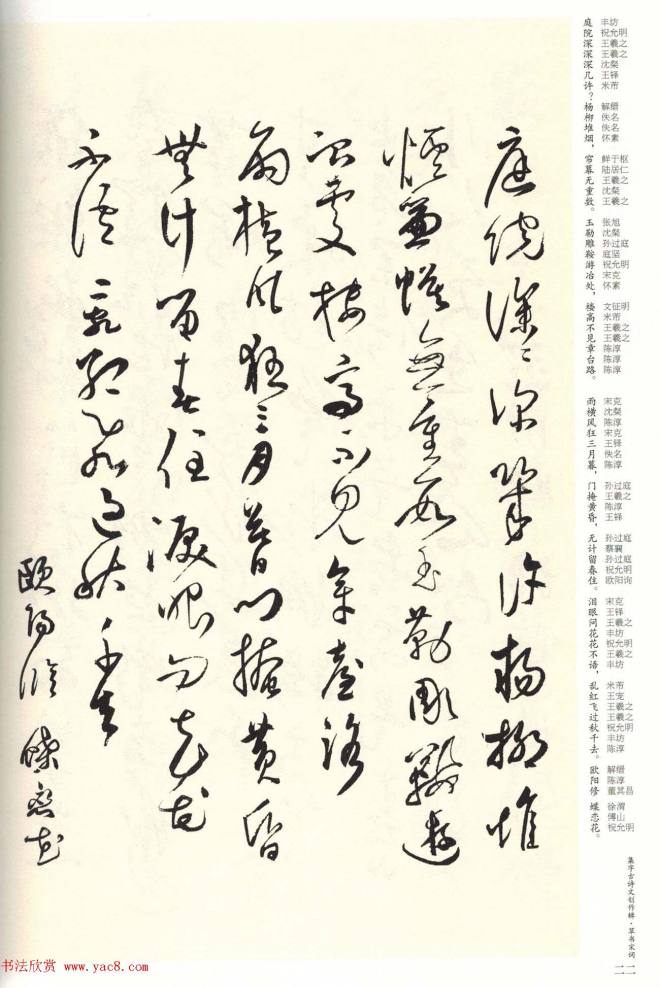 庭院深〻深幾許楊柳堆
煙簾幙無重數玉勒雕鞍遊
冶處樓高不見章臺路
雨橫風狂三月暮門掩黃昏
無計留春住淚眼問花花
不語亂紅飛過秋千去
歐陽修 蝶戀花
庭 丰坊
院 祝允明
深 王羲之
深 王羲之
深 沈粲
几 王铎
许？ 米芾
杨 解缙
柳 佚名
堆 佚名
烟， 怀素
帘 鲜于枢
幕 陆居仁
无 王羲之
重 沈粲
数。 王羲之
玉 张旭
勒 沈粲
雕 孙过庭
鞍 庭坚
游 祝允明
冶 宋克
处， 怀素
楼 文征明
高 米芾
不 王羲之
见 王羲之
章 陈淳
台 陈淳
路。 陈淳
雨 宋克
横 沈粲
风 陈淳
狂 宋克
三 王铎
月 佚名
暮， 陈淳
门 孙过庭
掩 王羲之
黄 陈淳
昏， 王铎
无 孙过庭
计 蔡襄
留 孙过庭
春 祝允明
住。 欧阳询
泪 宋克
眼 王铎
问 王羲之
花 丰坊
花 祝允明
不 王羲之
语， 丰坊
乱 米芾
红 王宠
飞 王羲之
过 王羲之
秋 祝允明
千 丰坊
去。 陈淳
欧 解缙
阳 陈淳
修 董其昌
蝶 徐渭
恋 傅山
花。 祝允明
集字古诗文创作粹·草书宋词
二二
书法欣赏 www.yac8.com